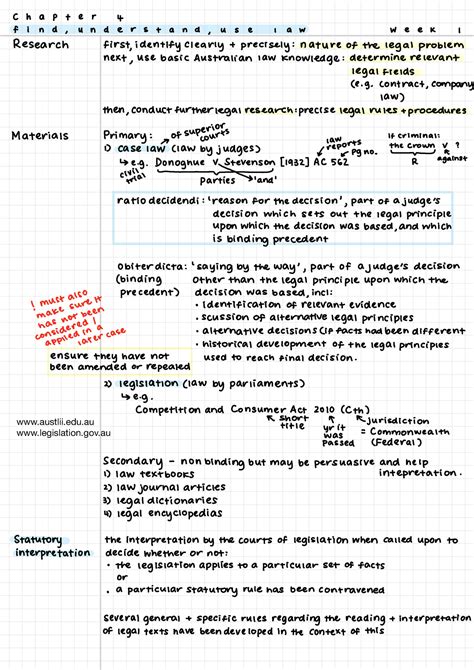 Chapter 4
find, understand, use law Week 1
Research
first, identify clearly + precisely: nature of the legal problem
next, use basic Australian law knowledge: determine relevant
legal fields
(e.g. contract, company
law)
then, conduct further legal research: precise legal rules + procedures
Materials
Primary: of superior
courts
1) case law (law by judges)
→ e.g. Donoghue v Stevenson [1932] AC 562
civil
trial
Parties 'and'
law
reports
Pg no.
If criminal:
the Crown v ?
R against
ratio decidendi: 'reason for the decision', part of a judge's
decision which sets out the legal principle
upon which the decision was based, and which
is binding precedent
Obiter dicta: 'saying by the way', part of a judge's decision
(binding other than the legal principle upon which the
precedent) decision was based, incl:
• identification of relevant evidence
• scussion of alternative legal principles
• alternative decisions (if facts had been different
• historical development of the legal principles
used to reach final decision.
! must also
make sure it
has not been
considered /
applied in a
later case
ensure they have not
been amended or repealed
2) legislation (law by parliaments)
→ e.g.
Competition and Consumer Act 2010 (Cth)
short
title
yr it
was
passed
jurisdiction
= Commonwealth
(Federal)
www.austlii.edu.au
www.legislation.gov.au
Secondary – non binding but may be persuasive and help
intepretation.
1) law textbooks
2) law journal articles
3) legal dictionaries
4) legal encyclopedias
Statutory
interpretation
the interpretation by the courts of legislation when called upon to
decide whether or not:
• the legislation applies to a particular set of facts
or
• a particular statutory rule has been contravened
Several general + specific rules regarding the reading + interpretation
of legal texts have been developed in the context of this